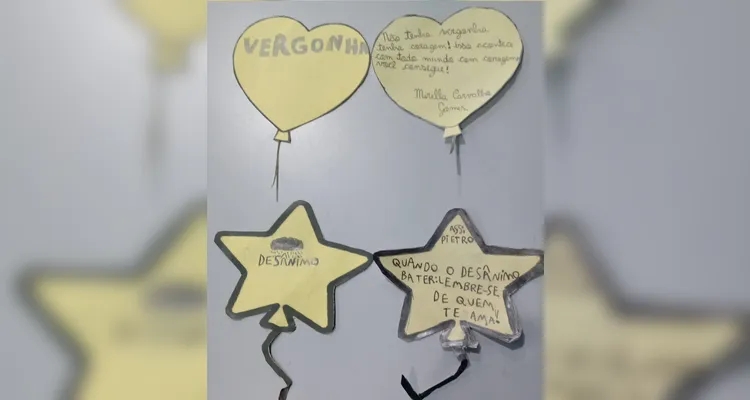 VERGONHA
Não tenha vergonha
tenha coragem! Isso acontece
com todo mundo com coragem
você consegue!
Mirella Carvalho
Gomes
DESÂNIMO
ASS:
PIETRO
QUANDO O DESÂNIMO
BATER: LEMBRE-SE
DE QUEM
TE AMA!